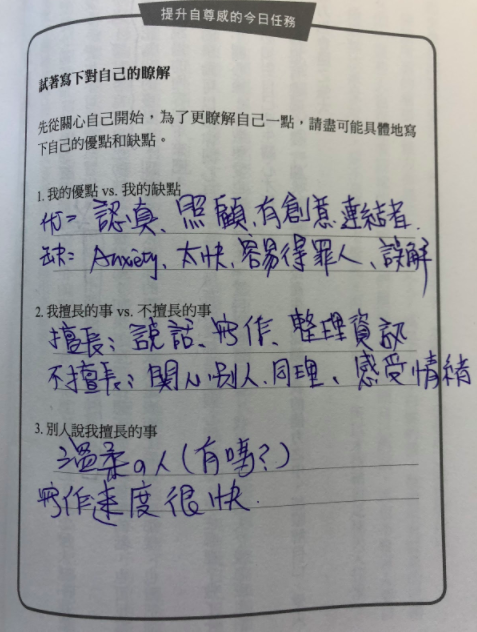 提升自尊感的今日任務
試著寫下對自己的瞭解
先從關心自己開始，為了更瞭解自己一點，請盡可能具體地寫
下自己的優點和缺點。
1. 我的優點 vs. 我的缺點
优= 認真、照顧、有創意、連結者.
缺= Anxiety、太快、容易得罪人、誤解
2. 我擅長的事 vs. 不擅長的事
擅長: 說話、寫作、整理資訊
不擅長: 関心別人、同理、感受情緒
3. 別人說我擅長的事
溫柔の人(有嗎?)
寫作速度很快.